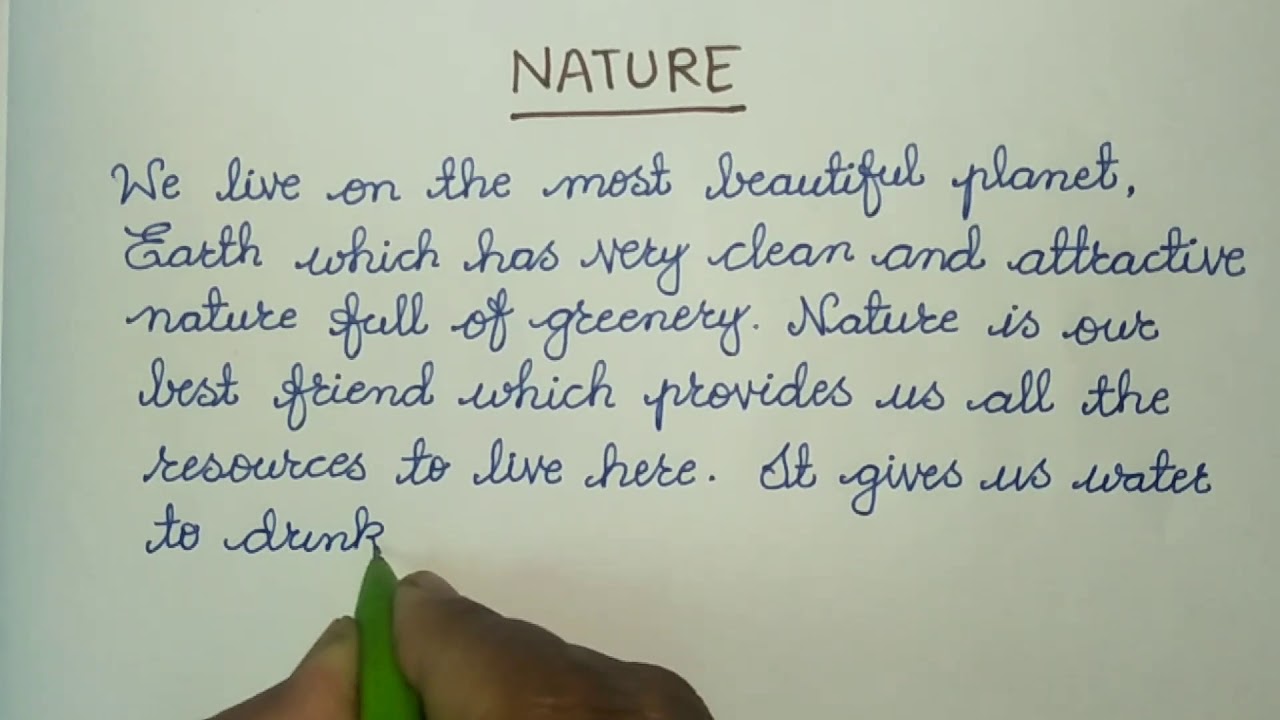 NATURE
We live on the most beautiful planet,
Earth which has very clean and attractive
nature full of greenery. Nature is our
best friend which provides us all the
resources to live here. It gives us water
to drink